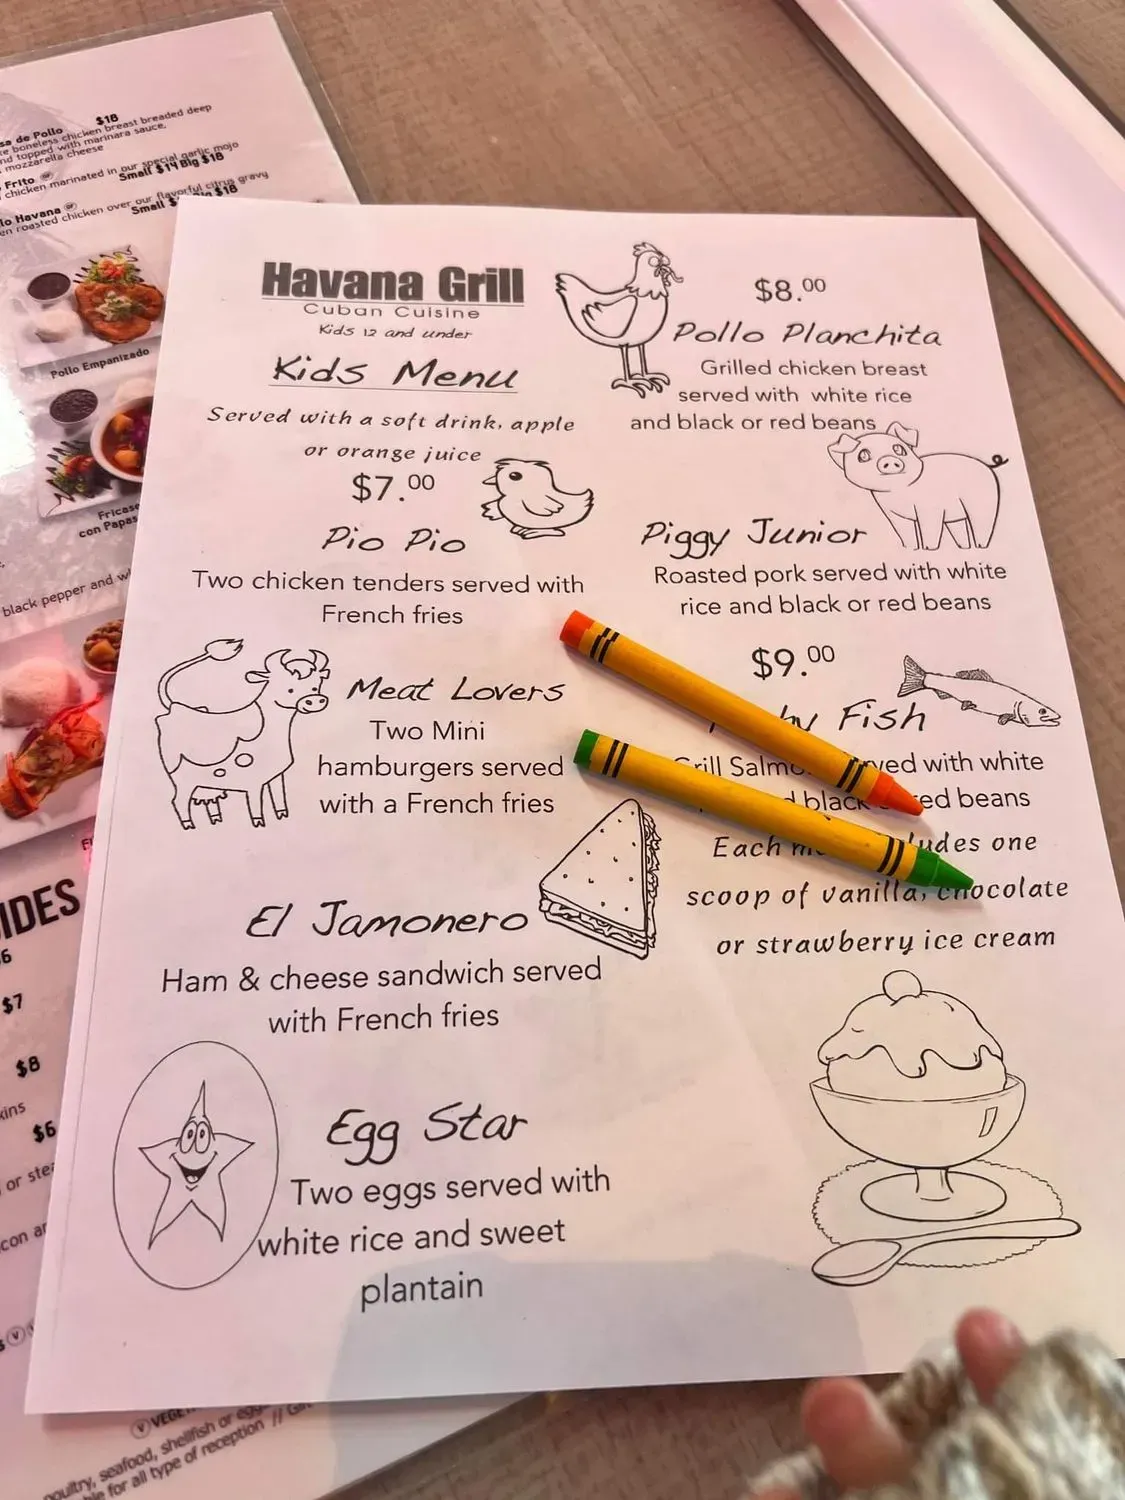 $18
sa de Pollo
boneless chicken breast breaded deep
nd topped with marinara sauce,
mozzarella cheese
Frito
chicken marinated in our special garlic mojo
Small $14 Big $18
lo Havana
en roasted chicken over our flavorful citrus gravy
Small $18
Pollo Empanizado
Fricase
con Papas
black pepper and
IDES
$7
$8
$6
or
Havana Grill
Cuban Cuisine
Kids 12 and under
Kids Menu
Served with a soft drink, apple
or orange juice
$7.00
Pio Pio
Two chicken tenders served with
French fries
Meat Lovers
Two Mini
hamburgers served
with a French fries
El Jamonero
Ham & cheese sandwich served
with French fries
Egg Star
Two eggs served with
white rice and sweet
plantain
$8.00
Pollo Planchita
Grilled chicken breast
served with white rice
and black or red beans
Piggy Junior
Roasted pork served with white
rice and black or red beans
$9.00
Fish
Grill with white
black red beans
Each one
scoop of vanilla, chocolate
or strawberry ice cream
poultry, seafood, shellfish or
for all type of reception //